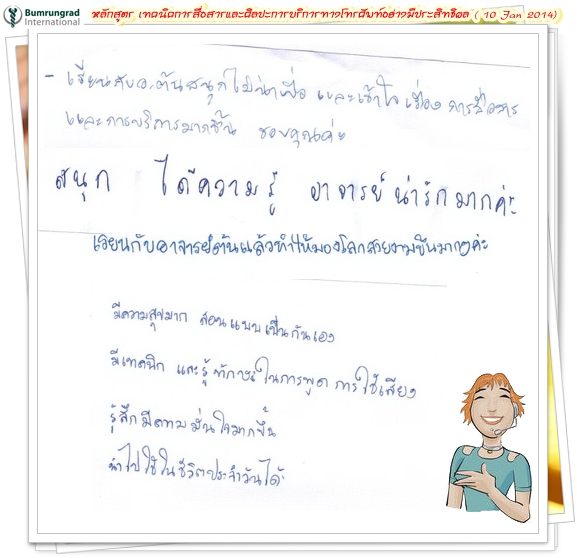 Bumrungrad
International
หลักสูตร เทคนิคการสื่อสารและศิลปะการบริการทางโทรศัพท์อย่างมีประสิทธิผล ( 10 Jan 2014)
- เรียนกับอ.ต้นสนุกไม่น่าเบื่อ และเข้าใจ เรื่อง การสื่อสาร
และการบริการมากขึ้น ขอบคุณค่ะ
สนุก ได้ความรู้ อาจารย์น่ารักมากค่ะ
เรียนกับอาจารย์ต้นแล้วทำให้มองโลกสวยงามขึ้นมากๆค่ะ
มีความสุขมาก สอนแบบเป็นกันเอง
มีเทคนิค และรู้ทักษะในการพูด การใช้เสียง
รู้สึกมีความมั่นใจมากขึ้น
นำไปใช้ในชีวิตประจำวันได้